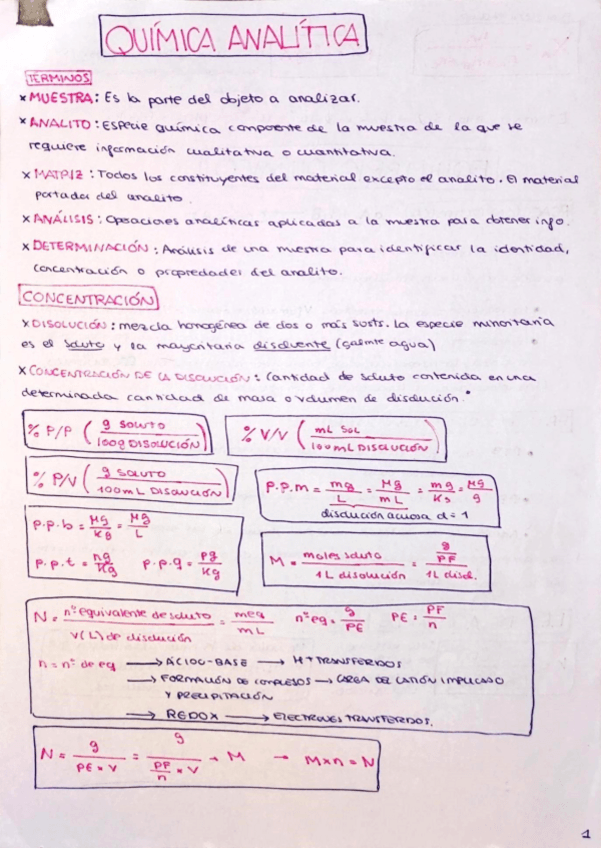 QUÍMICA ANALÍTICA
TÉRMINOS
× MUESTRA: Es la parte del objeto a analizar.
× ANALITO: Especie química componente de la muestra de la que se
requiere información cualitativa o cuantitativa.
× MATRIZ: Todos los constituyentes del material excepto el analito. El material
portador del analito.
× ANÁLISIS: Operaciones analíticas aplicadas a la muestra para obtener info.
× DETERMINACIÓN: Análisis de una muestra para identificar la identidad,
concentración o propiedades del analito.
CONCENTRACIÓN
× DISOLUCIÓN: mezcla homogénea de dos o más susts. La especie minoritaria
es el soluto y la mayoritaria disolvente (galmte agua)
× CONCENTRACIÓN DE LA DISOLUCIÓN: Cantidad de soluto contenida en una
determinada cantidad de masa o volumen de disolución.
% P/P (g SOLUTO / 100g DISOLUCIÓN)
% V/V (mL SOL / 100mL DISOLUCIÓN)
% P/V (g SOLUTO / 100mL DISOLUCIÓN)
P.P.m = mg/L = μg/mL = mg/Kg = μg/g
disolución acuosa d=1
P.P.b = μg/Kg = μg/L
P.P.t = ng/Kg P.P.q = pg/Kg
M = moles soluto / 1L disolución = g/PF / 1L disol.
N = nº equivalente de soluto / V(L) de disolución = meq/mL nº eq = g/PE PE = PF/n
n = nº de eq → ÁCIDO-BASE → H⁺ TRANSFERIDOS
→ FORMACIÓN DE COMPLEJOS → CARGA DEL CATIÓN IMPLICADO
Y PRECIPITACIÓN
→ REDOX → ELECTRONES TRANSFERIDOS.
N = g / PE × V = g / PF/n × V → M → M × n = N
1